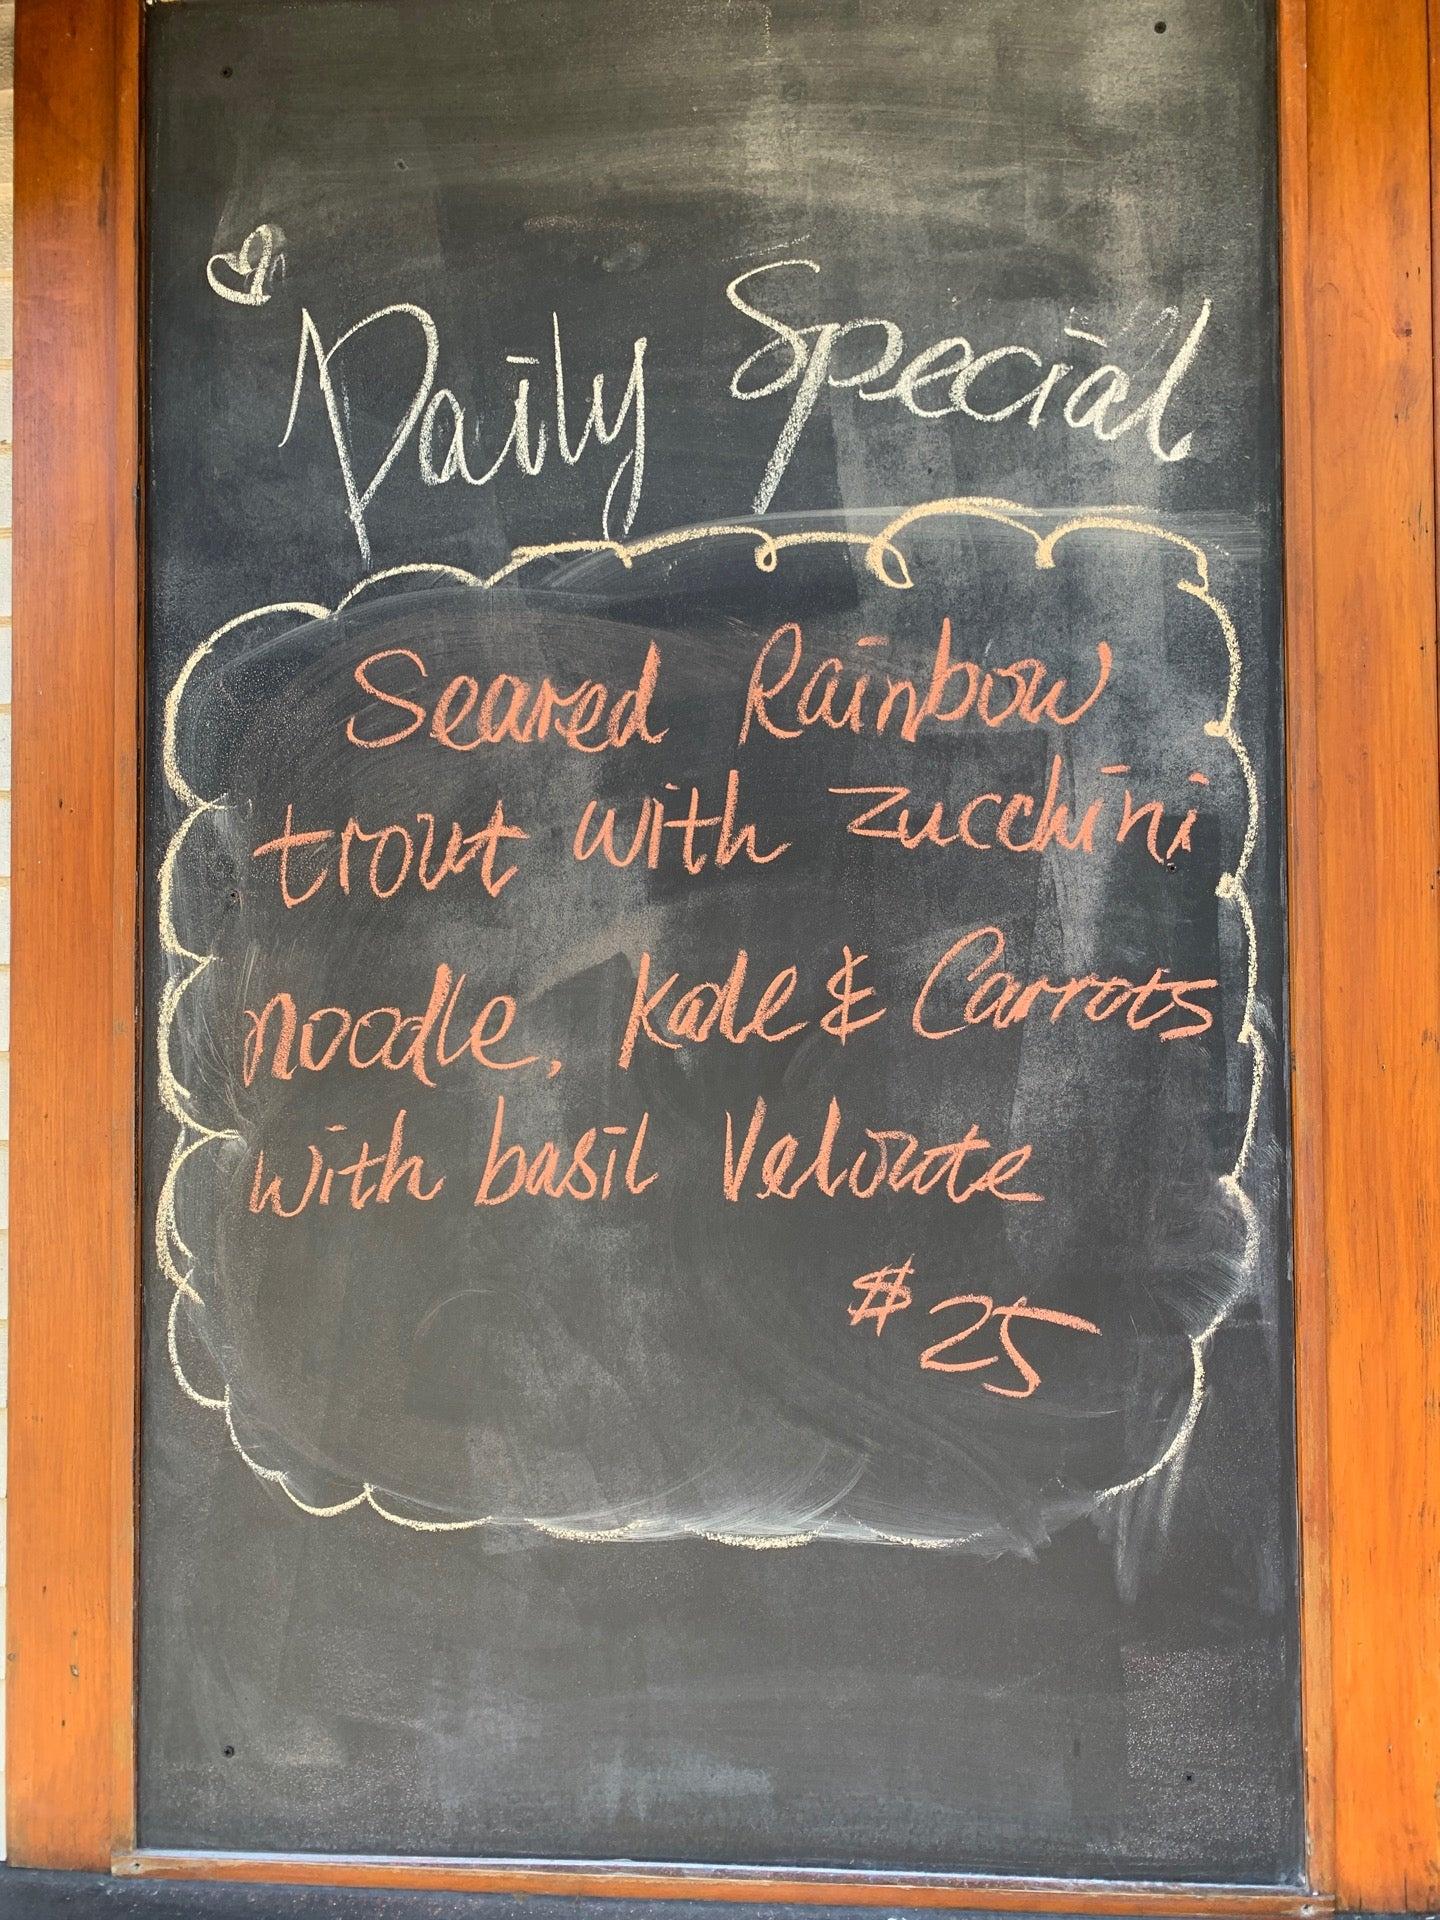 Daily Special
Seared Rainbow
trout with zucchini
noodle, Kale & Carrots
with basil Veloute
$25